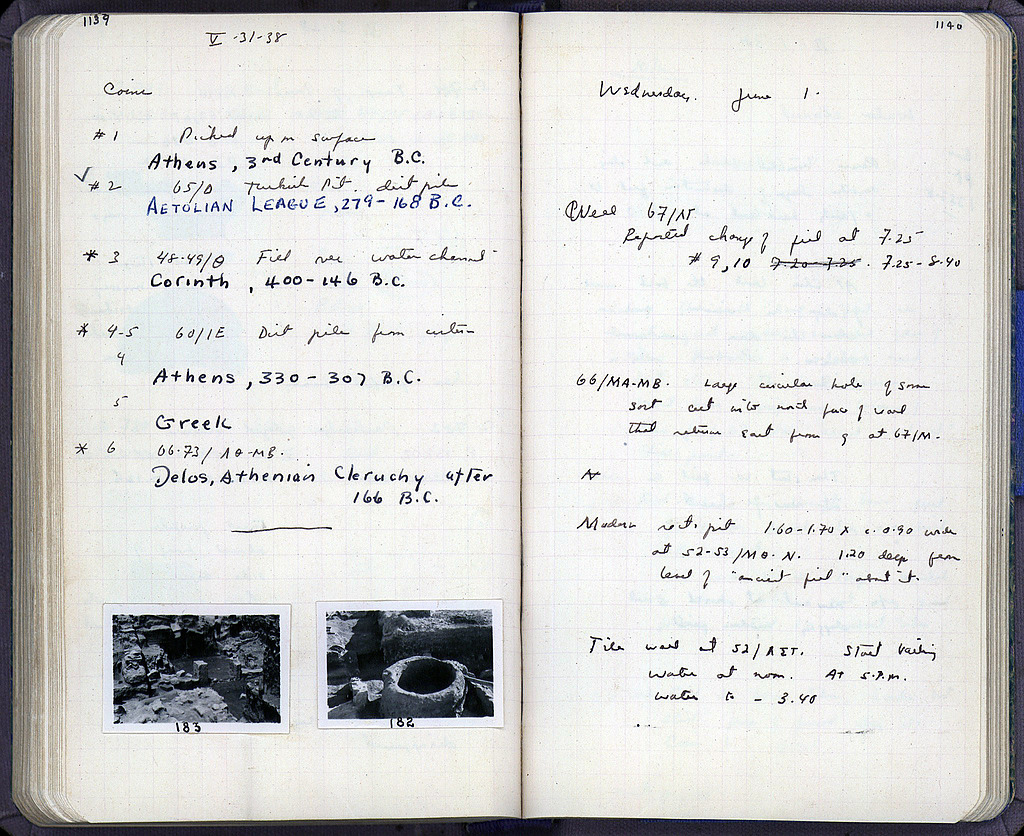 1139
V-31-38
Coins
#1 Picked up on surface
Athens, 3rd Century B.C.
✓ #2 65/Δ Turkish Pit. dirt pile
AETOLIAN LEAGUE, 279-168 B.C.
* 3 48-49/Θ Fill over water channel
Corinth, 400-146 B.C.
* 4-5 60/IE Dirt pile from cistern
4
Athens, 330-307 B.C.
5
Greek
* 6 66-73/ΛΘ-MB.
Delos, Athenian Cleruchy after
166 B.C.
183
182
1140
Wednesday. June 1.
Well 67/
Reported change of fill at 7.25
#9, 10 7.20-7.25. 7.25-8.40
66/MA-MB. Large circular hole of some
sort cut into north face of wall
that returns East from at 67/M.
Modern rect. pit 1.60-1.70 x c. 0.90 wide
at 52-53/MΘ-N. 1.20 deep from
level of "ancient fill" about it.
Tile well at 52/ Start bailing
water at noon. At 5 P.M.
water to - 3.40
...